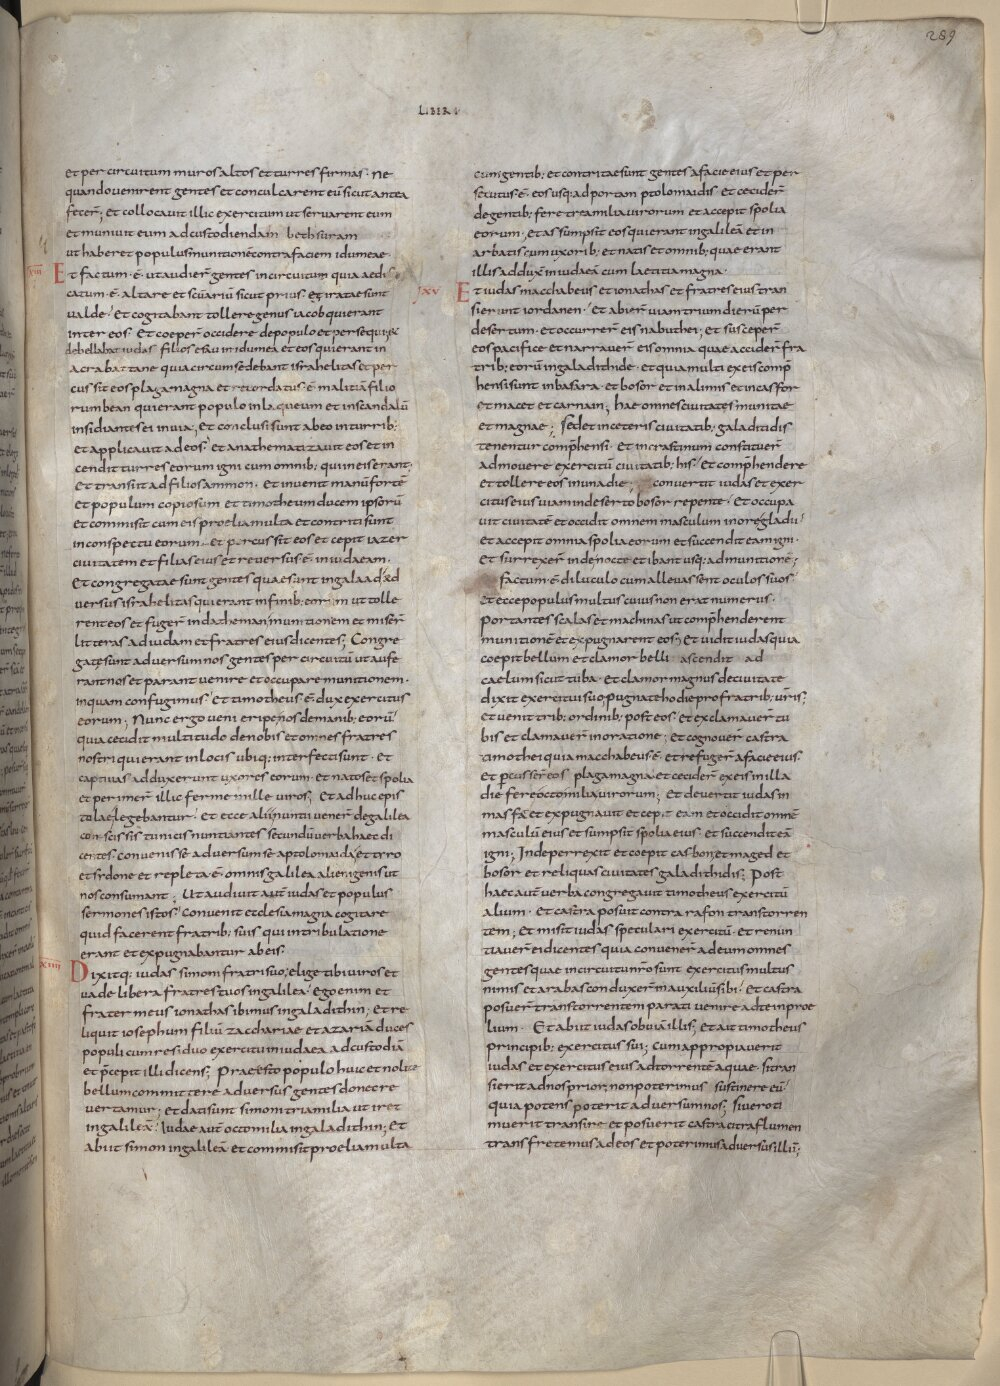 289
LIBER I
et per circuitum muros altos et turres firmas. Ne
quando venirent gentes et conculcarent eū sicut antea
fecer̄; et collocavit illic exercitum ut servarent eum
et munivit eum ad custodiendam bethsuram
ut haberet populus munitionē contra faciem idumeae.
XIII Et factum .ē. ut audier̄ gentes in circuitum quia aedifi
catum .ē. altare et sc̄uariū sicut prius. et iratae sunt
valde. Et cogitabant tollere genus iacob qui erant
inter eos. Et coeper̄ occidere de populo et persequi. et
debellabat iudas filios esau in idumea et eos qui erant in
acrabattane quia circumsedebant israhelitas et per
cussit eos plaga magna et recordatus .ē. malitiā filio
rum bean qui erant populo in laqueum et in scandalū
insidiantes ei in via; Et conclusi sunt ab eo in turrib;
et applicavit ad eos. et anathematizavit eos et in
cendit turres eorum igni cum omnib; qui in eis erant;
Et transiit ad filios ammon. et invenit manū fortē
et populum copiosum et timotheum ducem ipsorū
et commisit cum eis proelia multa et contriti sunt
in conspectu eorum. et percussit eos et cepit iazer
civitatem et filias eius et reversus .ē. in iudaeam.
Et congregatae sunt gentes quae sunt in galaad ad
versus israhelitas qui erant in finib; eorum ut tolle
rent eos et fuger̄ in datheman munitionem et miser̄
litteras ad iudam et fratres eius dicentes; Congre
gate sunt adversum nos gentes per circuitū ut aufe
rant nos et parant venire et occupare munitionem.
in quam confugimus. et timotheus .ē. dux exercitus
eorum; Nunc ergo veni eripe nos de manib; eorū
quia cecidit multitudo de nobis et omnes fratres
nostri qui erant in locis ubiq; interfecti sunt. et
captivas adduxerunt uxores eorum. et natos et spolia
et perimer̄ illic ferme mille viros; Et adhuc epis
tolae legebantur. et ecce alii nuntii vener̄ de galilea
conscissis tunicis nuntiantes secundū verba haec di
centes. Convenisse adversum se a ptolomaida et tyro
et sydone et repleta .ē. omnis galilea alienigenis ut
nos consumant. Ut audivit aut̄ iudas et populus
sermones istos. Convenit ecclesia magna cogitare
quid facerent fratrib; suis qui in tribulatione
erant et expugnabantur ab eis.
XIIII Dixitq; iudas simoni fratri suo; elige tibi viros et
vade libera fratres tuos in galilea. Ego enim et
frater meus ionathas ibimus in galadithin; et re
liquit iosephum filiū zacchariae et azariā duces
populi cum residuo exercitu in iudaea ad custodiā
et p̄cepit illi dicens; Praeesto populo huic et nolite
bellum committere adversus gentes donec re
vertamur; et dati sunt simoni tria milia ut iret
in galileā. Iudae aut̄ octo milia in galadithin; Et
abiit simon in galileā et commisit proelia multa
cum gentib; et contritae sunt gentes a facie eius et per
secutus .ē. eos usq; ad portam ptolomaidis et cecider̄
de gentib; fere tria milia virorum et accepit spolia
eorum. et assumpsit eos qui erant in galileā et in
arbatis cum uxorib; et natis et omnib; quae erant
illis adduxit in iudaeā cum laetitia magna.
XV Et iudas macchabeus et ionathas et fratres eius tran
sierunt iordanen. et abier̄ viam trium dierū per
desertum. et occurrer̄ eis nabuthei; et susceper̄
eos pacifice et narraver̄ eis omnia quae accider̄ fra
trib; eorū in galadithide. et quia multi ex eis comp̄
hensi sunt in basara. et bosor et in alimis et in casfor
et macet et carnain; hae omnes civitates munitae
et magnae; Sed et in ceteris civitatib; galaditidis
tenentur comp̄hensi. et in crastinum constituer̄
admovere exercitū civitatib; his. et comp̄hendere
et tollere eos in una die; convertit iudas et exer
citus eius viam in deserto bosor repente. et occupa
vit civitatē et occidit omnem masculum in ore gladii
et accepit omnia spolia eorum et succendit eam igni.
Et surrexer̄ inde nocte et ibant usq; ad munitionē;
factum .ē. diluculo cum allevassent oculos suos
et ecce populus multus cuius non erat numerus.
Portantes scalas et machinas ut comp̄henderent
munitionē et expugnarent eos; Et vidit iudas quia
coepit bellum et clamor belli ascendit ad
caelum sicut tuba. et clamor magnus de civitate
dixit exercitui suo pugnate hodie pro fratrib; vr̄is;
Et venit trib; ordinib; post eos. et exclamaver̄ tu
bis et clamaver̄ in oratione; et cognover̄ castra
timothei quia macchabeus .ē. et refuger̄ a facie eius.
et p̄cusser̄ eos plaga magna et ceciderr̄ ex eis in illa
die fere octo milia virorum; Et devertit iudas in
masfa et expugnavit et cepit eam et occidit omnē
masculū eius et sumpsit spolia eius. et succendit eā
igni; Inde perrexit et coepit casbon et maged et
bosor et reliquas civitates galadithidis; Post
haec aut̄ verba congregavit timotheus exercitū
alium. et castra posuit contra rafon trans torren
tem; Et misit iudas speculari exercitū. et renun
tiaver̄ ei dicentes quia convener̄ ad eum omnes
gentes quae in circuitu nr̄o sunt exercitus multus
nimis et arabas conduxer̄ in auxiliū sibi. et castra
posuer̄ trans torrentem parati venire ad te in proe
lium. Et abiit iudas obviā illis; et ait timotheus
principib; exercitus sui; cum appropiaverit
iudas et exercitus eius ad torrentē aquae. si tran
sierit ad nos prior; non poterimus sustinere eū.
quia potens poterit adversum nos; Si vero ti
muerit transire et posuerit castra citra flumen
transfretemus ad eos et poterimus adversus illū;